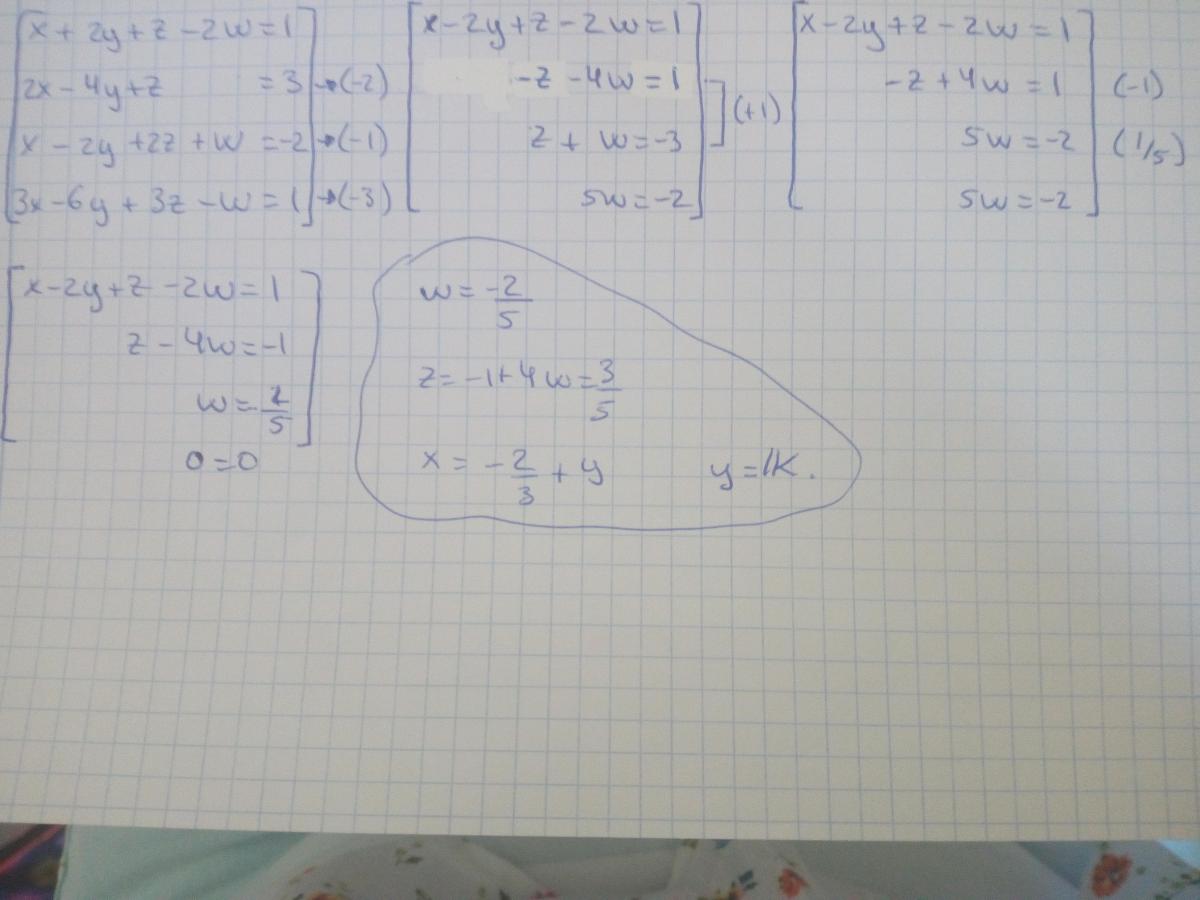 x + 2y + z - 2w = 1
2x - 4y + z = 3 → (-2)
x - 2y + 2z + w = -2 → (-1)
3x - 6y + 3z - w = 1 → (-3)
x - 2y + z - 2w = 1
-z - 4w = 1
z + w = -3
(+1)
5w = -2
x - 2y + z - 2w = 1
-z + 4w = 1 (-1)
5w = -2 (1/5)
5w = -2
x - 2y + z - 2w = 1
z - 4w = -1
w = -2/5
0 = 0
w = -2/5
z = -1 + 4w = 3/5
x = -2/3 + y y = IK.